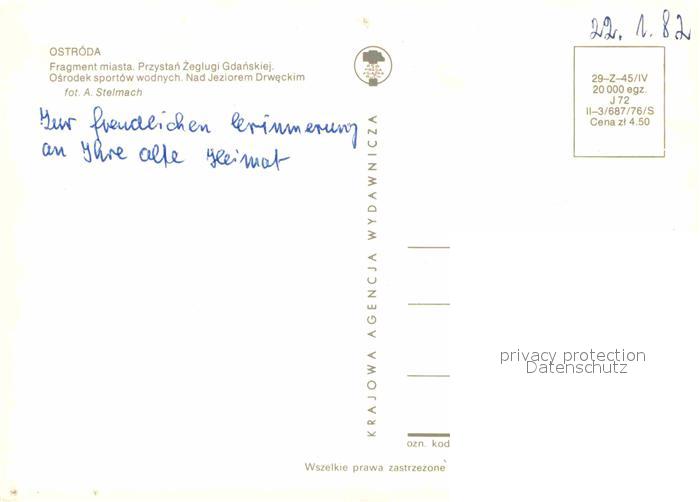 22. 1. 82
OSTRÓDA
Fragment miasta. Przystań Żeglugi Gdańskiej.
Ośrodek sportów wodnych. Nad Jeziorem Drwęckim
fot. A. Stelmach
Zur freudlichen Erinnerung
an Ihre alte Heimat
KRAJOWA AGENCJA WYDAWNICZA
29-Z-45/IV
20 000 egz.
J 72
II-3/687/76/S
Cena zł 4.50
privacy protection
Datenschutz
ozn. kod
Wszelkie prawa zastrzeżone